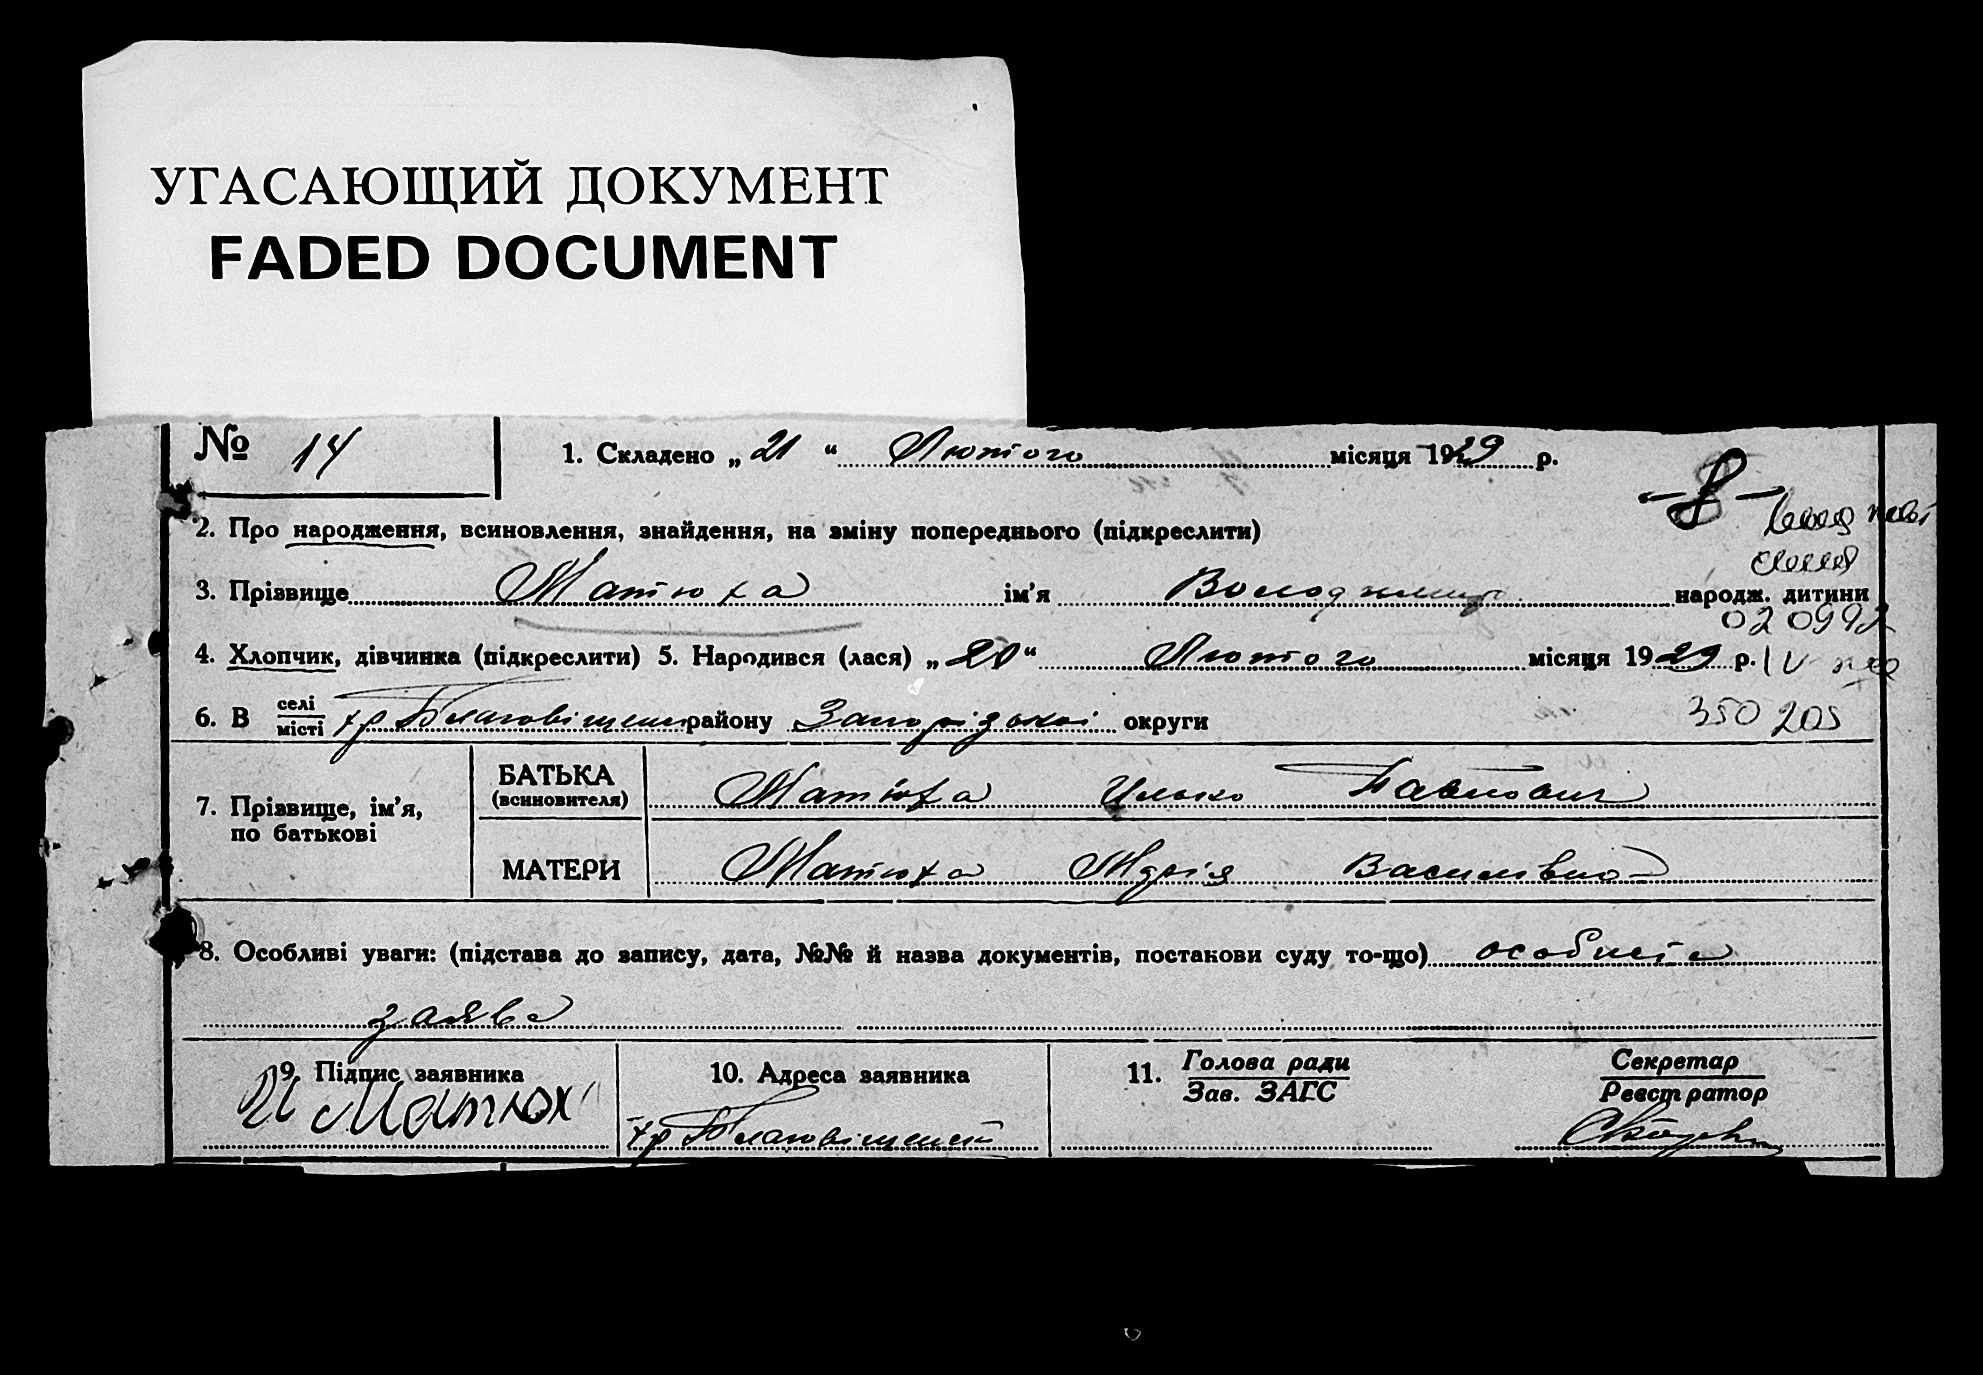 УГАСАЮЩИЙ ДОКУМЕНТ
FADED DOCUMENT
№ 14
1. Складено „ 21 “ Лютого місяця 1929 р.
- 8 -
2. Про народження, всиновлення, знайдення, на зміну попереднього (підкреслити)
3. Прізвище Матюха ім'я Володимир народж. дитини
020992
4. Хлопчик, дівчинка (підкреслити) 5. Народився (лася) „ 20 “ Лютого місяця 1929 р. IV
6. В селі місті хр Благовіщен району Запорізької округи 350205
7. Прізвище, ім'я, по батькові
БАТЬКА (всиновителя) Матюха Ілько Павлович
МАТЕРИ Матюха Марія Василівна
8. Особливі уваги: (підстава до запису, дата, №№ й назва документів, постакови суду то-що) особиста
заява
9. Підпис заявника
10. Адреса заявника
11. Голова ради Зав. ЗАГС
Секретар Реєстратор
И Матюх
хр Благовіщенськ